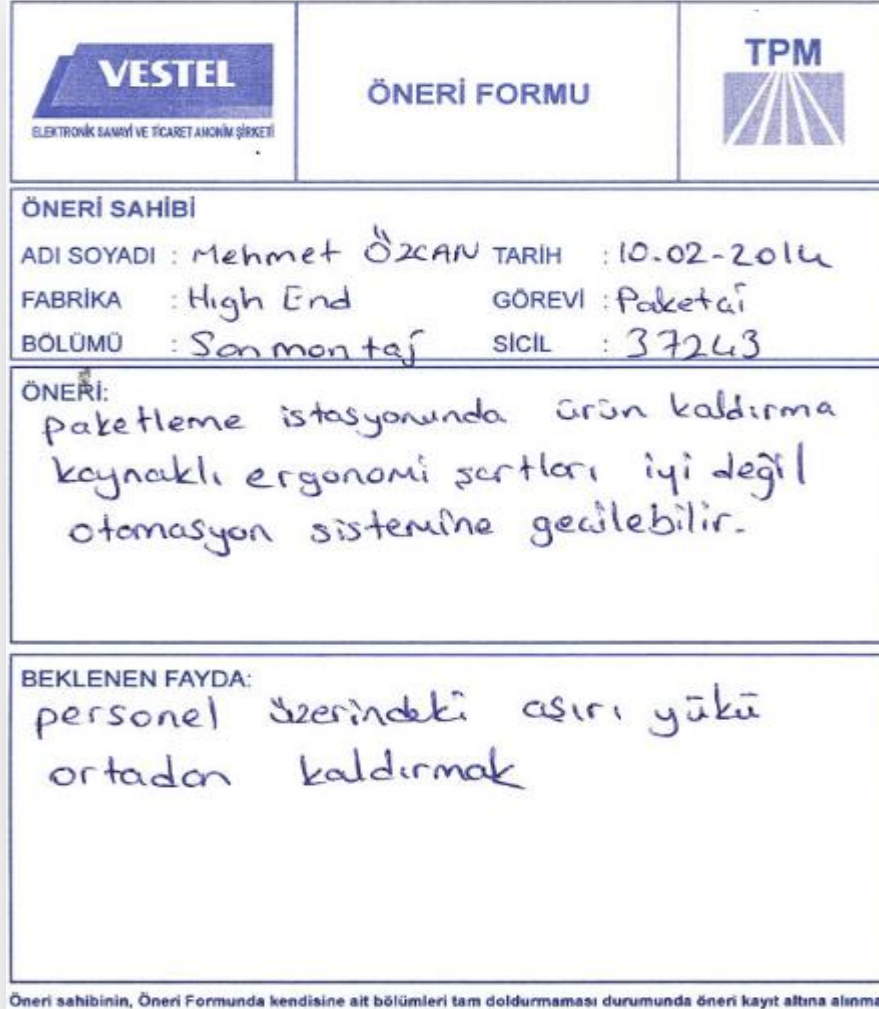 VESTEL
ELEKTRONİK SANAYİ VE TİCARET ANONİM ŞİRKETİ
ÖNERİ FORMU
TPM
ÖNERİ SAHİBİ
ADI SOYADI : Mehmet ÖZCAN TARİH : 10.02-2014
FABRİKA : High End GÖREVİ : Paketçi
BÖLÜMÜ : Son montaj SİCİL : 37243
ÖNERİ:
paketleme istasyonunda ürün kaldırma
kaynaklı ergonomi şartları iyi değil
otomasyon sistemine geçilebilir.
BEKLENEN FAYDA:
personel üzerindeki aşırı yükü
ortadan kaldırmak
Öneri sahibinin, Öneri Formunda kendisine ait bölümleri tam doldurmaması durumunda öneri kayıt altına alınma